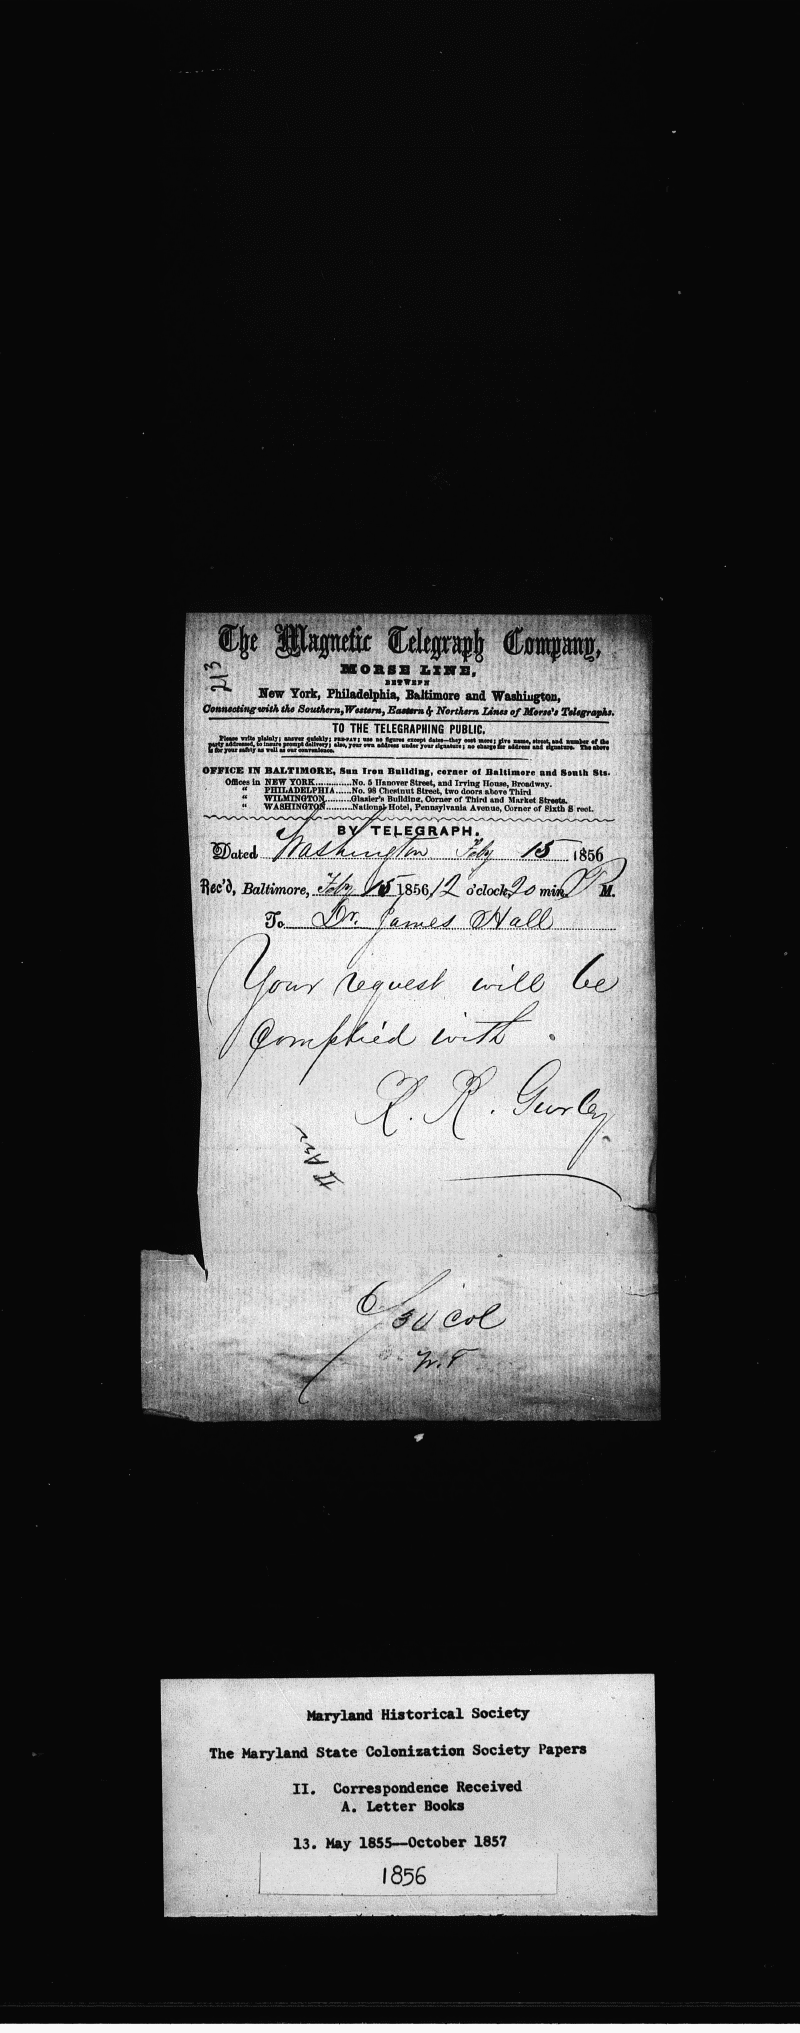 The Magnetic Telegraph Company,
213
MORSE LINE,
BETWEEN
New York, Philadelphia, Baltimore and Washington,
Connecting with the Southern, Western, Eastern & Northern Lines of Morse's Telegraphs.
TO THE TELEGRAPHING PUBLIC.
Please write plainly; answer quickly; PRE-PAY; use no figures except dates—they cost more; give name, street, and number of the
party addressed, to insure prompt delivery; also, your own address under your signature; no charge for address and signature. The above
is for your safety as well as our convenience.
OFFICE IN BALTIMORE, Sun Iron Building, corner of Baltimore and South Sts.
Offices in NEW YORK............No. 5 Hanover Street, and Irving House, Broadway.
" PHILADELPHIA.....No. 98 Chestnut Street, two doors above Third
" WILMINGTON.........Glazier's Building, Corner of Third and Market Streets.
" WASHINGTON.........National Hotel, Pennsylvania Avenue, Corner of Sixth S reet.
BY TELEGRAPH.
Dated Washington Feby 15 1856
Rec'd, Baltimore, Feby 15 1856, 12 o'clock, 20 min. P M.
To Dr. James Hall
Your request will be
complied with.
R. R. Gurley
col
Maryland Historical Society
The Maryland State Colonization Society Papers
II. Correspondence Received
A. Letter Books
13. May 1855--October 1857
1856